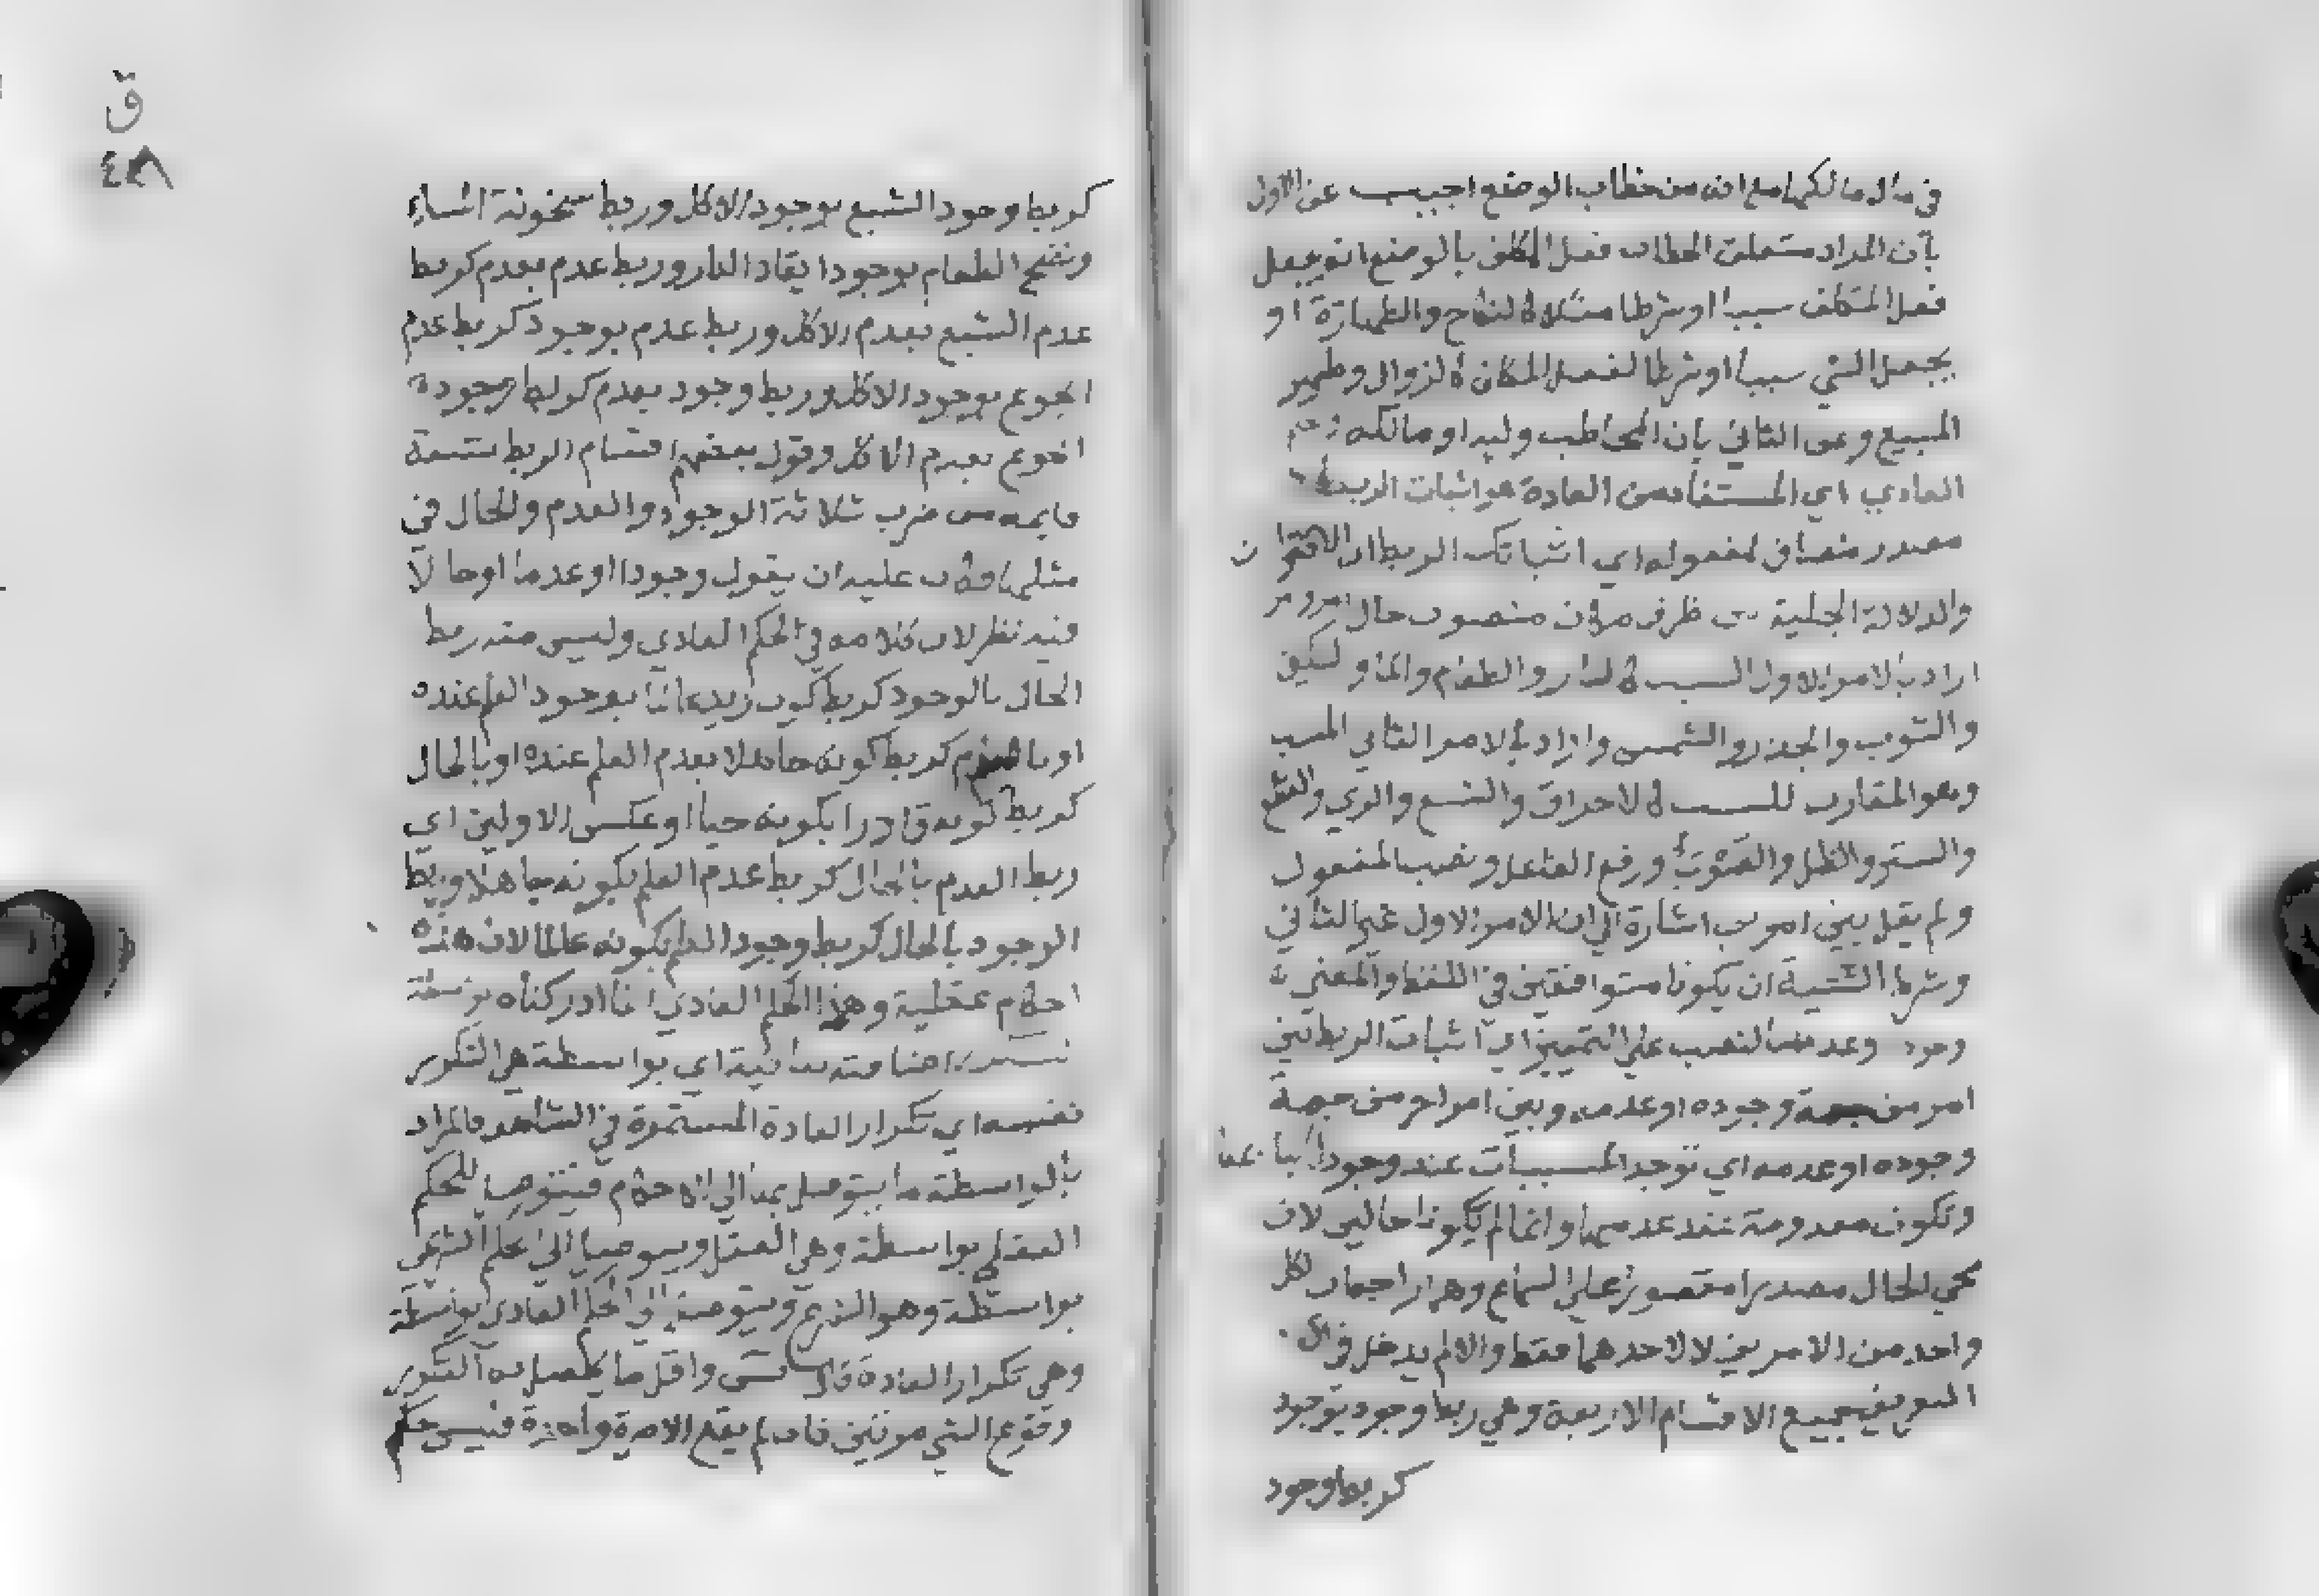 في مال مالكها مع انه من خطاب الوضع اجيب عن الاول
بان المراد متعلق الخطاب فعل المكلف بالوضع انه يجعل
فعل المكلف سببا او شرطا مثلا كالنكاح والطهارة او
يجعل الشي سببا او شرطا لفعل المكلف كالزوال وطهر
المبيع وعن الثاني بان المخاطب وليه او مالكه
العادي اي المستفاد من العادة هو اثبات الربط
مصدر مضاف لمفعوله اي اثباتك الربط اي الاقتران
والدلالة الجلية بين ظرف مكان منصوب حال امر وامر
اراد بالامر الاول السبب كالنار والطعام والماء والسكين
والثوب والجدر والشمس واراد بالامر الثاني المسبب
وهو المقارب للسبب كالاحراق والشبع والري والقطع
والستر والظل والضوء ورفع الفاعل ونصب المفعول
ولم يقل بين امرين اشارة الي ان الامر الاول غير الثاني
وشرط التثنية ان يكونا متوافقين في اللفظ والمعني
وجود وعدما النصب علي التمييز اي اثبات الربط بين
امر من جهة وجوده او عدمه وبين امر اخر من جهة
وجوده او عدمه اي توجد المسببات عند وجود
وتكون معدومة عند عدمها وانما لم يكونا حالين لان
مجي الحال مصدرا مقصور علي السماع وهما راجعان لكل
واحد من الامرين لا لاحدهما فقط والا لم يدخل في
التعريف جميع الاقسام الاربعة وهي ربط وجود بوجود
كربط وجود
ق
٤٨
كربط وجود الشبع بوجود الاكل وربط سخونة الماء
ونضج الطعام بوجود ايقاد النار وربط عدم بعدم كربط
عدم الشبع بعدم الاكل وربط عدم بوجود كربط عدم
الجوع بوجود الاكل وربط وجود بعدم كربط وجود
الجوع بعدم الاكل وقول بعضهم اقسام الربط تسعة
قايمة من ضرب ثلاثة الوجود والعدم والحال في
مثلها فكان عليه ان يقول وجودا او عدما او حالا
فيه نظر لان كلامه في الحكم العادي وليس منه ربط
الحال بالوجود كربط كون زيد عالما بوجود العلم عنده
او بالعدم كربط كونه جاهلا بعدم العلم عنده او بالحال
كربط كونه قادرا بكونه حيا او عكس الاولين اي
ربط العدم بالحال كربط عدم العلم بكونه جاهلا وربط
الوجود بالحال كربط وجود العلم بكونه عالما لان هذه
احكام عقلية وهذا الحكم العادي انما ادركناه بواسطة
اضافته بيانية اي بواسطة هي التكرر
نفسه اي تكرار العادة المستمرة في الشاهد فالمراد
بالواسطة ما يتوصل بها الي الاحكام فيتوصل للحكم
العقلي بواسطة وهي العقل ويتوصل الي حكم الشرعي
بواسطة وهو الشرع ويتوصل الي الحكم العادي بواسطة
وهي تكرار العادة قال واقل ما يحصل به التكرر
وقوع الشي مرتين فان لم يقع الا مرة واحدة فليس حكم